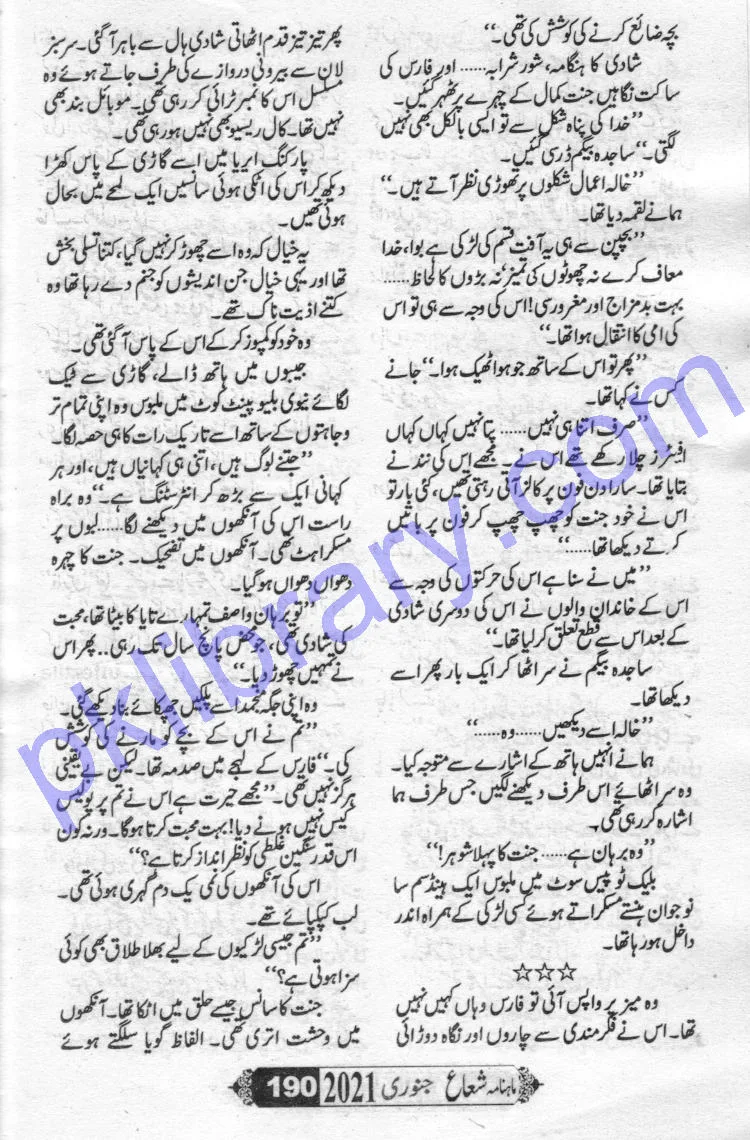 بچہ ضائع کرنے کی کوشش کی تھی۔“
شادی کا ہنگامہ، شور شرابہ...... اور فارس کی
ساکت نگاہیں جنت کمال کے چہرے پر ٹھہر گئیں۔
”خدا کی پناہ شکل سے تو ایسی بالکل بھی نہیں
لگتی۔“ ساجدہ بیگم ڈر سی گئیں۔
”خالہ اعمال شکلوں پر تھوڑی نظر آتے ہیں۔“
ہمانے لقمہ دیا تھا۔
”بچپن سے ہی یہ آفت قسم کی لڑکی ہے بوا، خدا
معاف کرے نہ چھوٹوں کی تمیز نہ بڑوں کا لحاظ......
بہت بدمزاج اور مغرور سی! اس کی وجہ سے ہی تو اس
کی امی کا انتقال ہوا تھا۔“
”پھر تو اس کے ساتھ جو ہوا ٹھیک ہوا۔“ جانے
کس نے کہا تھا۔
”صرف اتنا ہی نہیں...... پتا نہیں کہاں کہاں
افیئرز چلا رکھے تھے اس نے۔ مجھے اس کی نند نے
بتایا تھا۔ سارا دن فون پر کالز آئی رہتی تھیں، کئی بار تو
اس نے خود جنت کو چھپ چھپ کر فون پر باتیں
کرتے دیکھا تھا......“
”میں نے سنا ہے اس کی حرکتوں کی وجہ سے
اس کے خاندان والوں نے اس کی دوسری شادی
کے بعد اس سے قطع تعلق کر لیا تھا۔“
ساجدہ بیگم نے سر اٹھا کر ایک بار پھر اسے
دیکھا تھا۔
”خالہ اسے دیکھیں...... وہ......“
ہمانے انہیں ہاتھ کے اشارے سے متوجہ کیا۔
وہ سر اٹھائے اس طرف دیکھنے لگیں جس طرف ہما
اشارہ کر رہی تھی۔
”وہ برہان ہے...... جنت کا پہلا شوہر!“
بلیک ٹو پیس سوٹ میں ملبوس ایک ہینڈسم سا
نوجوان ہنستے مسکراتے ہوئے کسی لڑکی کے ہمراہ اندر
داخل ہو رہا تھا۔
☆☆☆
وہ میز پر واپس آئی تو فارس وہاں کہیں نہیں
تھا۔ اس نے فکرمندی سے چاروں اور نگاہ دوڑائی
پھر تیز تیز قدم اٹھاتی شادی ہال سے باہر آ گئی۔ سرسبز
لان سے بیرونی دروازے کی طرف جاتے ہوئے وہ
مسلسل اس کا نمبر ٹرائی کر رہی تھی۔ موبائل بند بھی
نہیں تھا۔ کال ریسیو بھی نہیں ہو رہی تھی۔
پارکنگ ایریا میں اسے گاڑی کے پاس کھڑا
دیکھ کر اس کی اٹکی ہوئی سانسیں ایک لمحے میں بحال
ہوئی تھیں۔
یہ خیال کہ وہ اسے چھوڑ کر نہیں گیا، کتنا تسلی بخش
تھا اور یہی خیال جن اندیشوں کو جنم دے رہا تھا وہ
کتنے اذیت ناک تھے۔
وہ خود کو کمپوز کر کے اس کے پاس آ گئی تھی۔
جیبوں میں ہاتھ ڈالے، گاڑی سے ٹیک
لگائے نیوی بلیو پینٹ کوٹ میں ملبوس وہ اپنی تمام تر
وجاہتوں کے ساتھ اسے تاریک رات کا ہی حصہ لگا۔
”جتنے لوگ ہیں، اتنی ہی کہانیاں ہیں، اور ہر
کہانی ایک سے بڑھ کر انٹرسٹنگ ہے۔“ وہ براہ
راست اس کی آنکھوں میں دیکھنے لگا...... لبوں پر
مسکراہٹ تھی۔ آنکھوں میں تضحیک۔ جنت کا چہرہ
دھواں دھواں ہو گیا۔
”تو برہان واصف تمہارے تایا کا بیٹا تھا، محبت
کی شادی تھی، جو محض پانچ سال تک رہی.. پھر اس
نے تمہیں چھوڑ دیا۔“
وہ اپنی جگہ منجمد اسے پلکیں جھپکائے بنا دیکھے گئی۔
”تم نے اس کے بچے کو مارنے کی کوشش
کی۔“ فارس کے لہجے میں صدمہ تھا۔ لیکن بے یقینی
ہرگز نہیں تھی۔ ”مجھے حیرت ہے اس نے تم پر پولیس
کیس نہیں ہونے دیا! بہت محبت کرتا ہوگا۔ ورنہ کون
اس قدر سنگین غلطی کو نظر انداز کرتا ہے؟“
اس کی آنکھوں کی نمی یک دم گہری ہوئی تھی۔
لب کپکپائے تھے۔
”تم جیسی لڑکیوں کے لیے بھلا طلاق بھی کوئی
سزا ہوئی ہے؟“
جنت کا سانس جیسے حلق میں اٹکا تھا۔ آنکھوں
میں وحشت اتری تھی۔ الفاظ گویا سلگتے ہوئے
ماہنامہ شعاع جنوری 2021 190
pklibrary.com